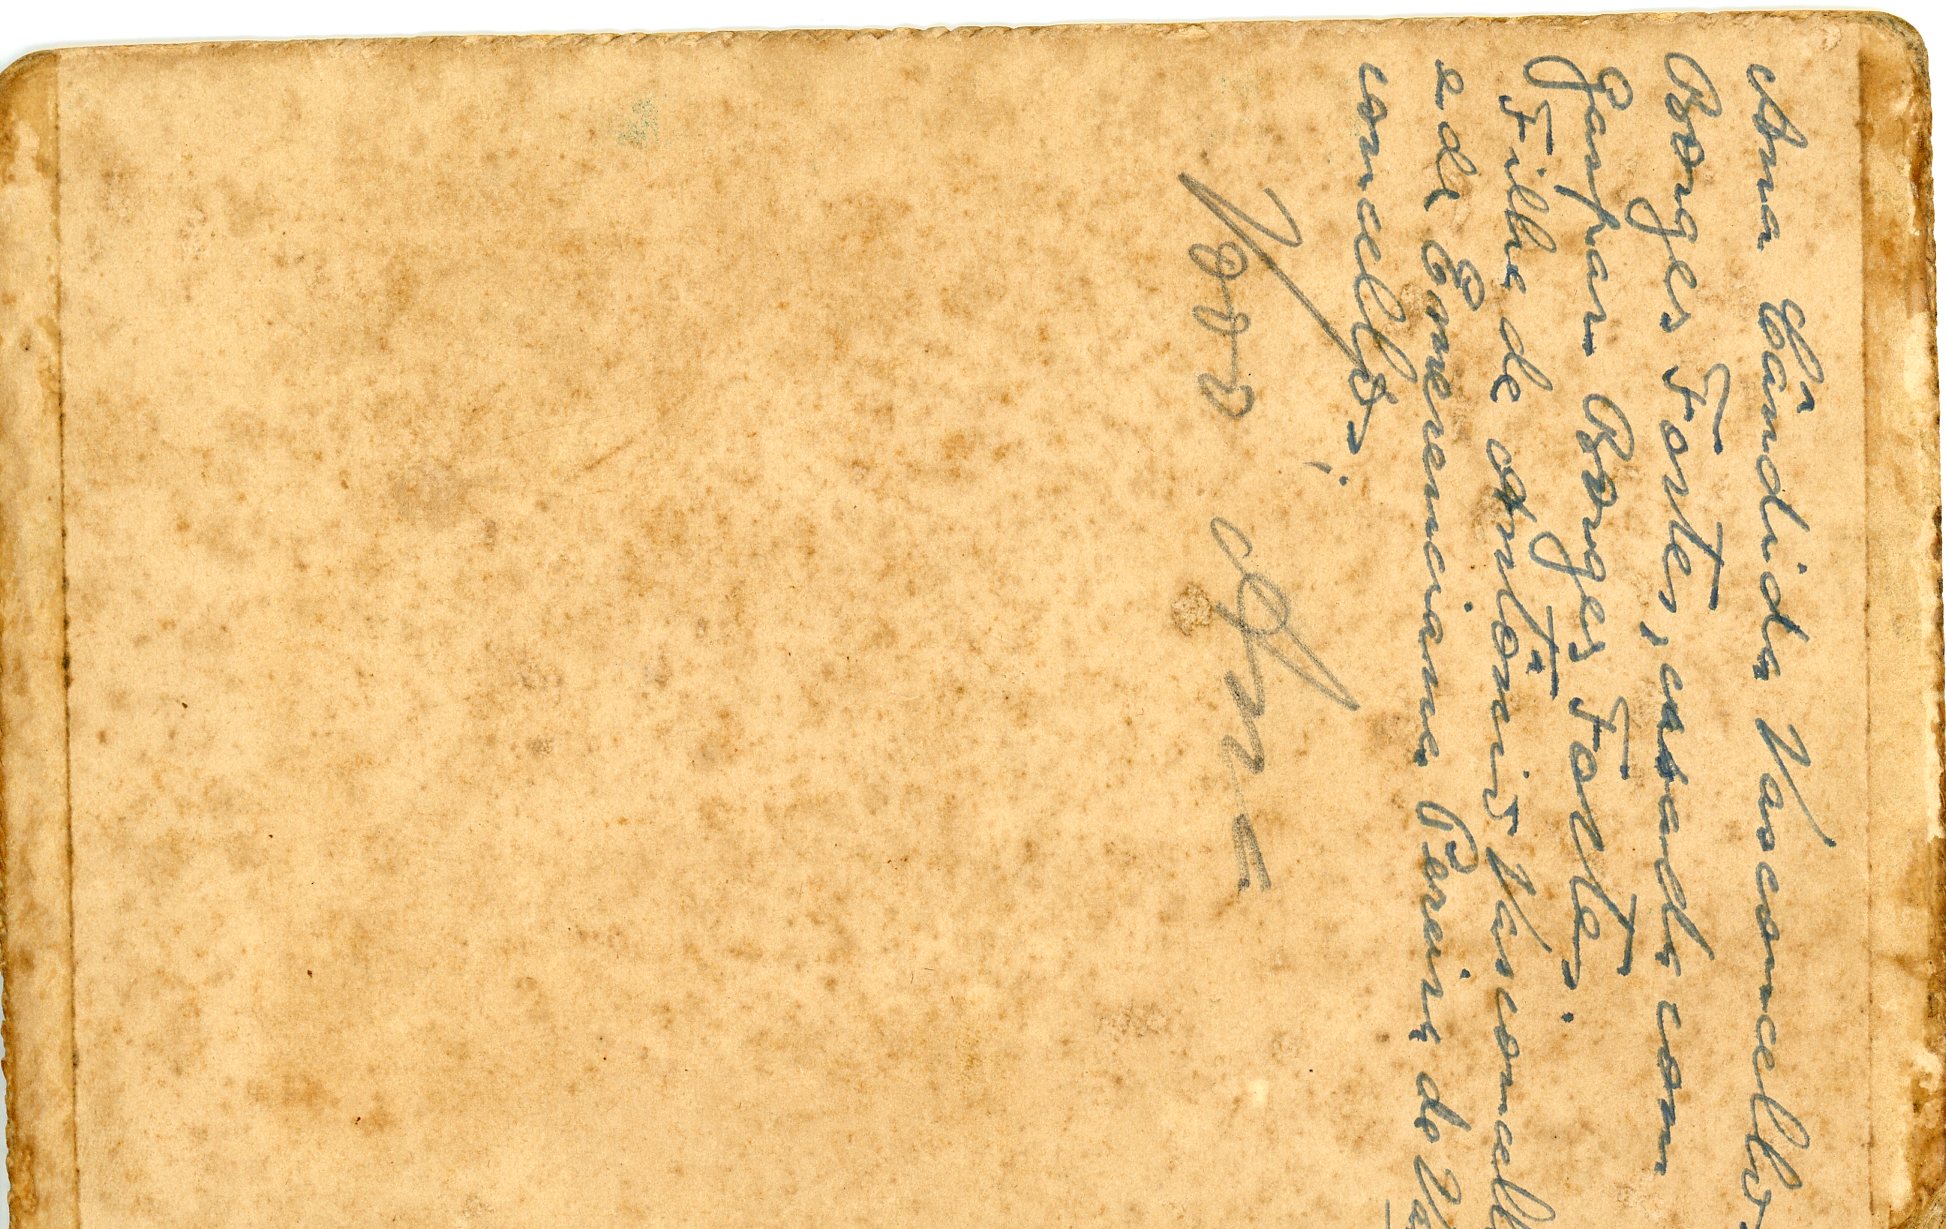 Ana Cândida Vasconcellos
Borges Fortes, casada com
Gaspar Borges Fortes.
Filha de Antônio Vasconcell
e de Emerenciana Pereira de Vas
concellos.
Vovó Ana